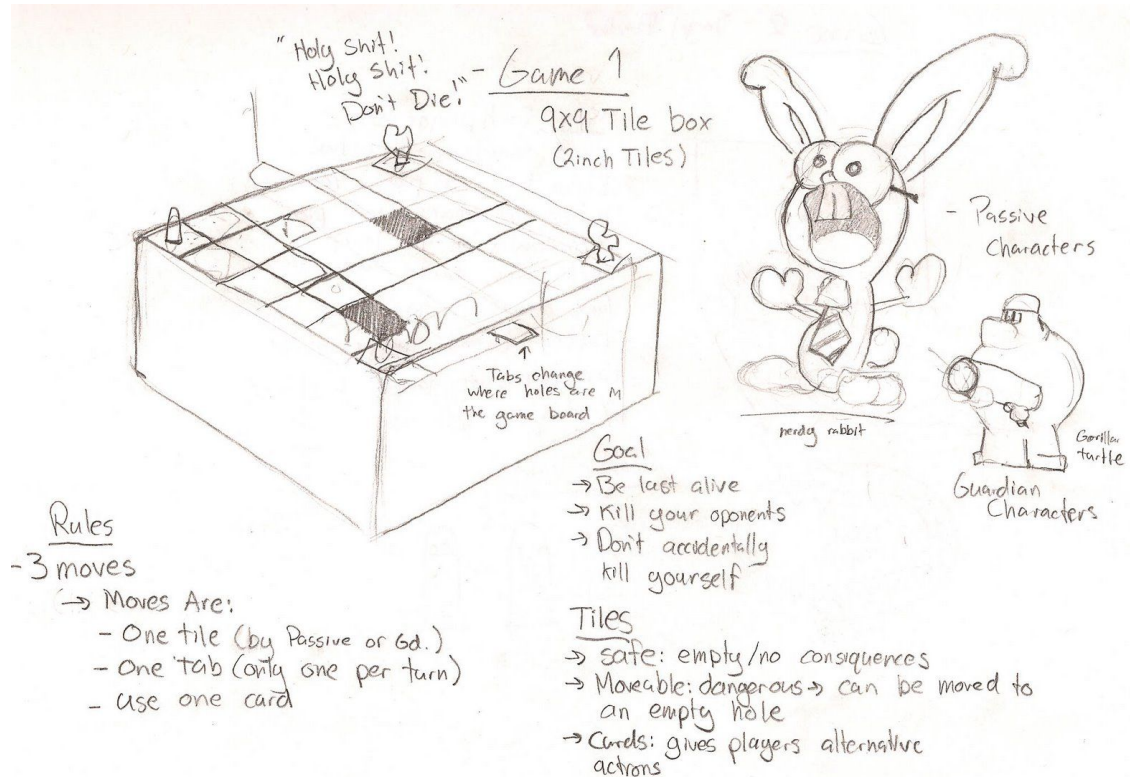 "Holy Shit!
Holy Shit!
Don't Die!" - Game 1
9x9 Tile box
(2inch Tiles)
- Passive
Characters
Tabs change
where holes are in
the game board
nerdy rabbit
Gorilla
turtle
Guardian
Characters
Goal
→ Be last alive
→ Kill your oponents
→ Don't accidentally
kill yourself
Rules
- 3 moves
→ Moves Are:
- One tile (by Passive or Gd.)
- One Tab (only one per turn)
- use one card
Tiles
→ safe: empty/no consiquences
→ Moveable: dangerous → can be moved to
an empty hole
→ Cards: gives players alternative
actions